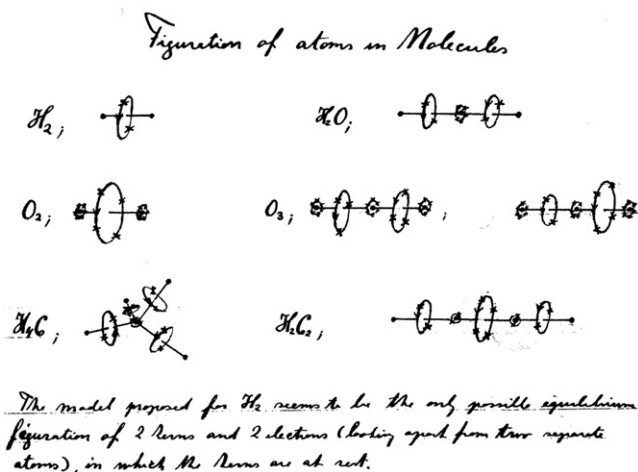 Figuration of atoms in Molecules
H₂; H₂O;
O₂; O₃; ;
H₄C; H₂C₂;
The model proposed for H₂ seems to be the only possible equilibrium
figuration of 2 kerns and 2 electrons (looking apart from two separate
atoms), in which the kerns are at rest.